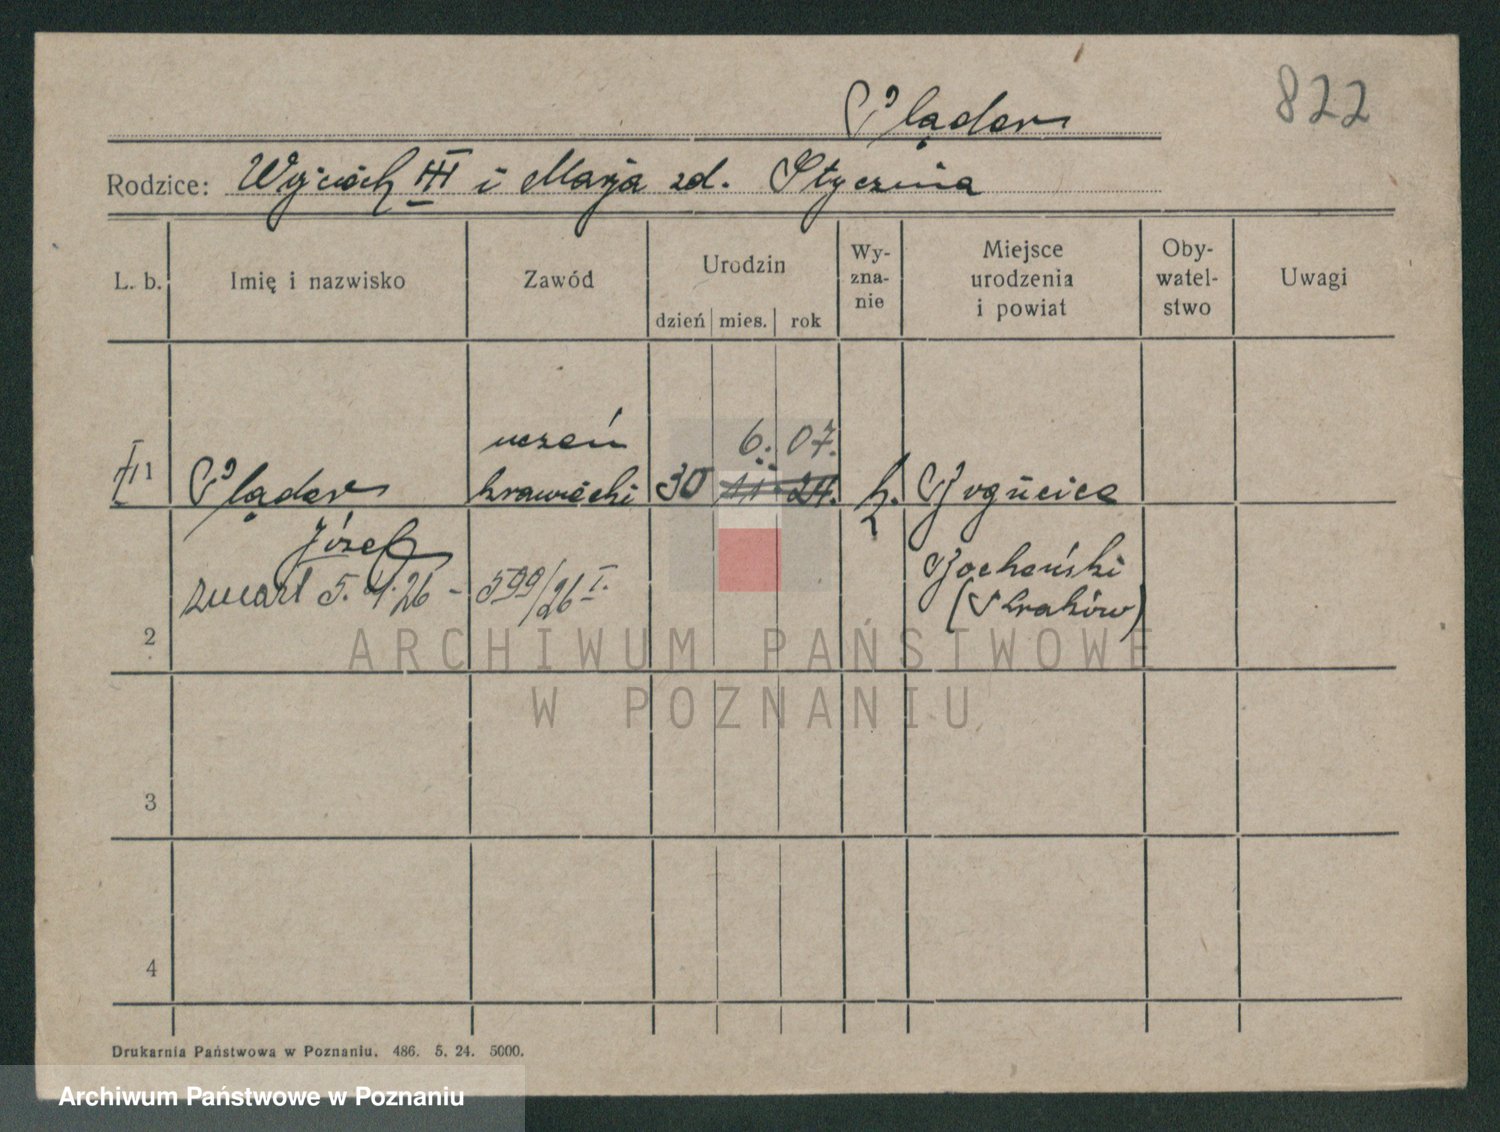 822
Plądor
Rodzice: Wojciech III i Marja zd. Stycznia
L. b. Imię i nazwisko Zawód Urodzin dzień mies. rok Wy- zna- nie Miejsce urodzenia i powiat Oby- watel- stwo Uwagi
6. 07.
uczeń
1 Plądor krawiecki 30 11. 24. k. Bogucice
Józef Bocheński
zmarł 5. 4. 26 - 599/26 I. (Kraków)
2
ARCHIWUM PAŃSTWOWE
W POZNANIU
3
4
Drukarnia Państwowa w Poznaniu. 486. 5. 24. 5000.
Archiwum Państwowe w Poznaniu